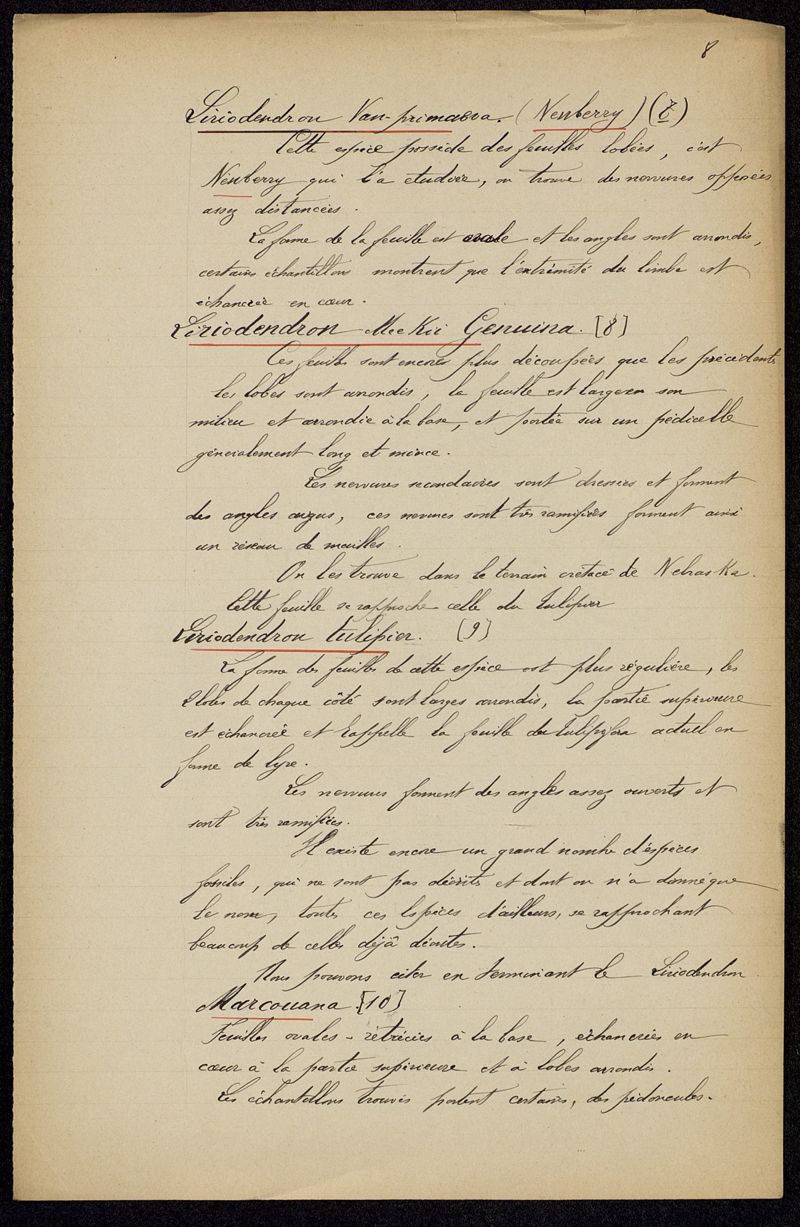 8
Liriodendron Van-primaeva. (Newberry) (7)
Cette espèce possède des feuilles lobées, c'est
Newberry qui l'a étudiée, on trouve des nervures opposées
assez distancées.
La forme de la feuille est ovale et les angles sont arrondis,
certains échantillons montrent que l'extrémité du limbe est
échancrée en cœur.
Liriodendron Meekii Genuina. [8]
Ces feuilles sont encore plus découpées que les précédentes
les lobes sont arrondis, la feuille est large en son
milieu et arrondie à la base, et portée sur un pédicelle
généralement long et mince.
Les nervures secondaires sont dressées et forment
des angles aigus, ces nervures sont très ramifiées forment ainsi
un réseau de mailles.
On les trouve dans le terrain crétacé de Nebraska.
Cette feuille se rapproche celle du Tulipier
Liriodendron tulipier. [9]
La forme des feuilles de cette espèce est plus régulière, les
2 lobes de chaque côté sont larges arrondis, la partie supérieure
est échancrée et rappelle la feuille du Tulipifera actuel en
forme de lyre.
Les nervures forment des angles assez ouverts et
sont très ramifiées.
Il existe encore un grand nombre d'espèces
fossiles, qui ne sont pas décrites et dont on n'a donné que
le nom, toutes ces espèces d'ailleurs, se rapprochant
beaucoup de celles déjà décrites.
Nous pouvons citer en terminant le Liriodendron
Marcouana. [10]
Feuilles ovales - rétrécies à la base, échancrées en
cœur à la partie supérieure et à lobes arrondis.
Les échantillons trouvés portent certains, des pédoncules.